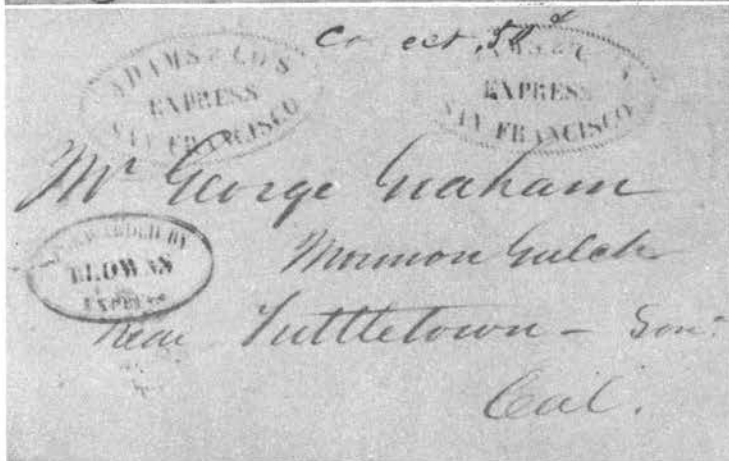 ADAMS & CO'S
EXPRESS
SAN FRANCISCO
EXPRESS
SAN FRANCISCO
Mr George Graham
FORWARDED BY
EXPRESS
Mormon Gulch
Near Tuttletown – Son:
Cal.